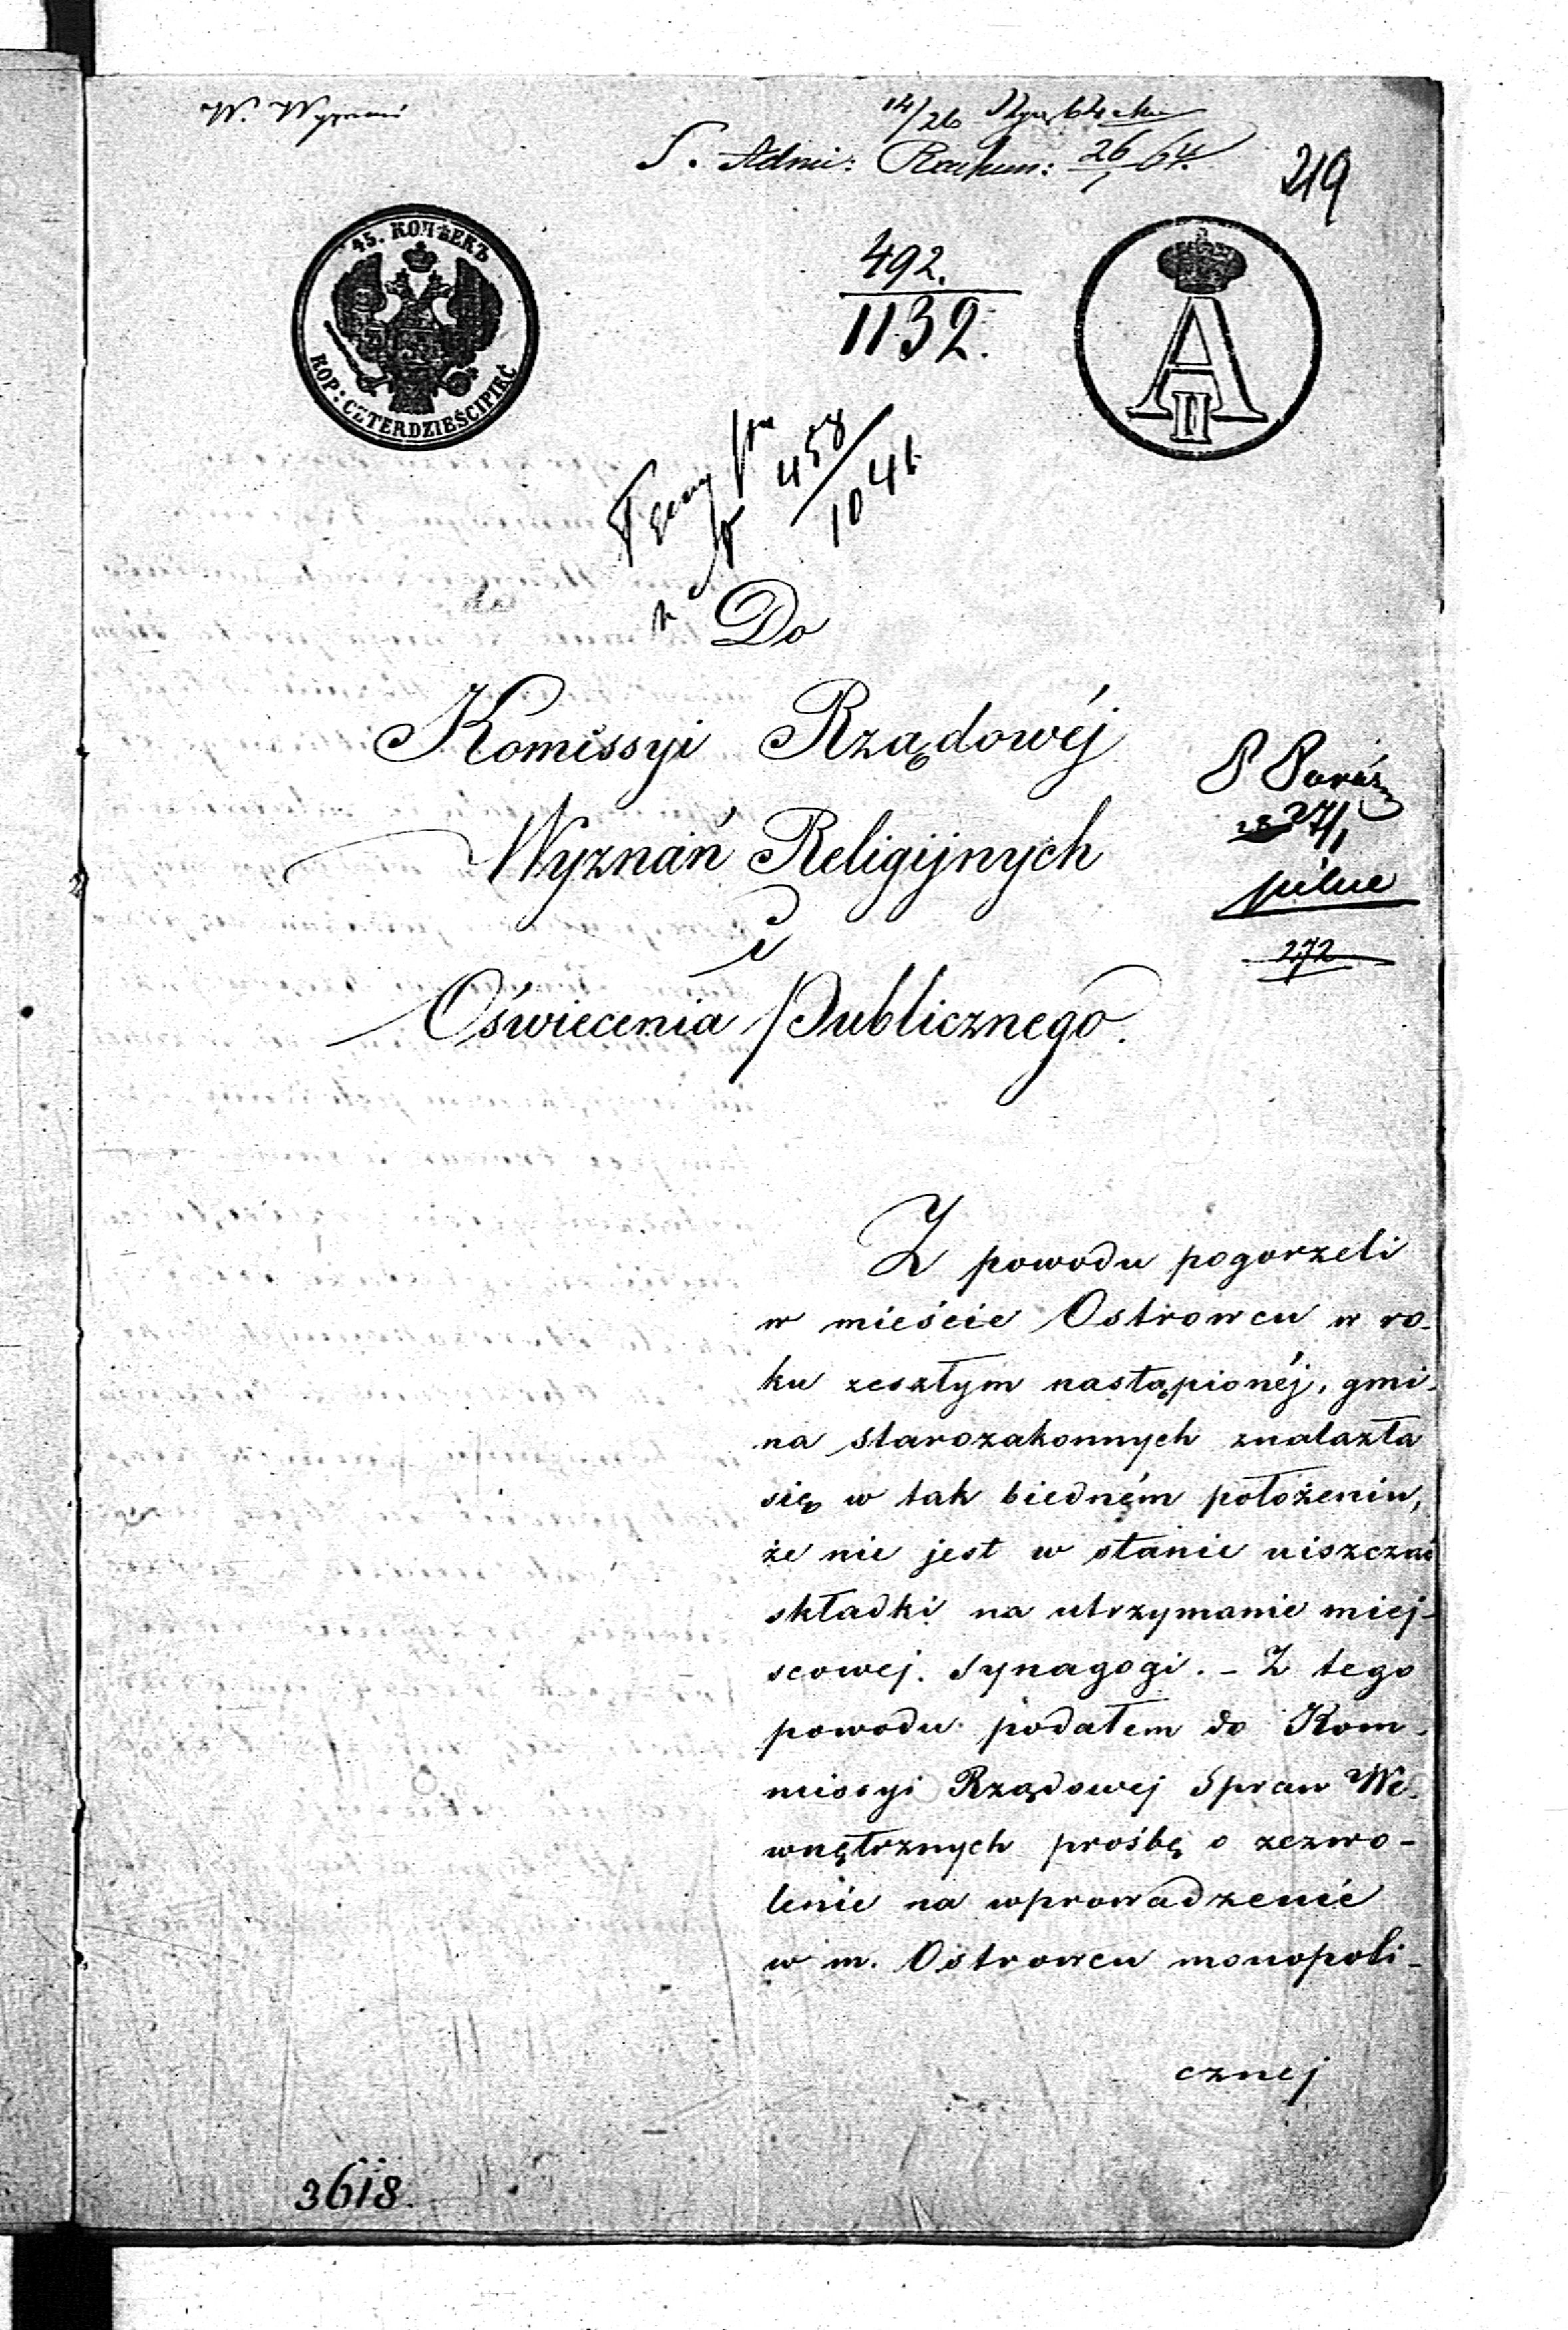 W. Wyznań
14/26
S. Admi: Rachun: 26/1 64.
219
45. КОПѢЕКЪ
KOP: CZTERDZIEŚCI PIĘĆ
A II
492.
1132.
458
1041
Do
Komissyi Rządowéj
Wyznań Religijnych
i
Oświecenia Publicznego.
P
27/1
pilne
272
Z powodu pogorzeli
w mieście Ostrowcu w ro-
ku zeszłym nastąpionéj, gmi-
na starozakonnych znalazła
się w tak biedném położeniu,
że nie jest w stanie uiszczać
składki na utrzymanie miej-
scowej. Synagogi. – Z tego
powodu podałem do Kom-
missyi Rządowej Spraw We-
wnętrznych prośbę o zezwo-
lenie na wprowadzenie
w m. Ostrowcu monopoli-
cznej
3618.